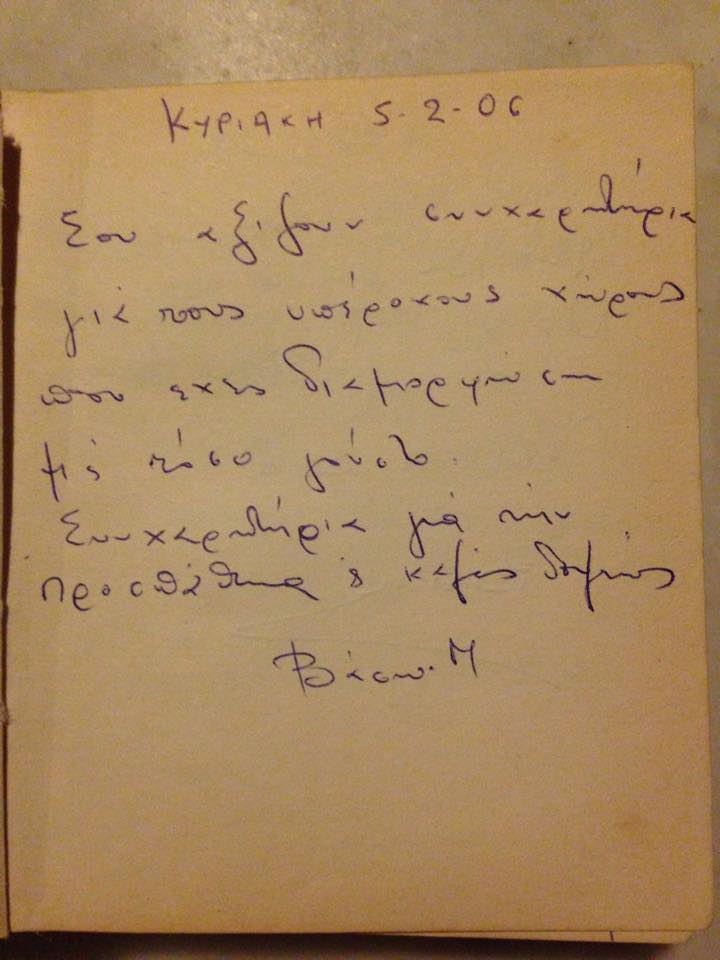 ΚΥΡΙΑΚΗ 5-2-06
Σου αξίζουν συγχαρητήρια
γιά τους υπέροχους χώρους
που έχεις διαμορφώσει
μέ τόσο γούστο.
Συγχαρητήρια γιά τήν
προσπάθεια & καλές δουλειές
Βάσω. Μ